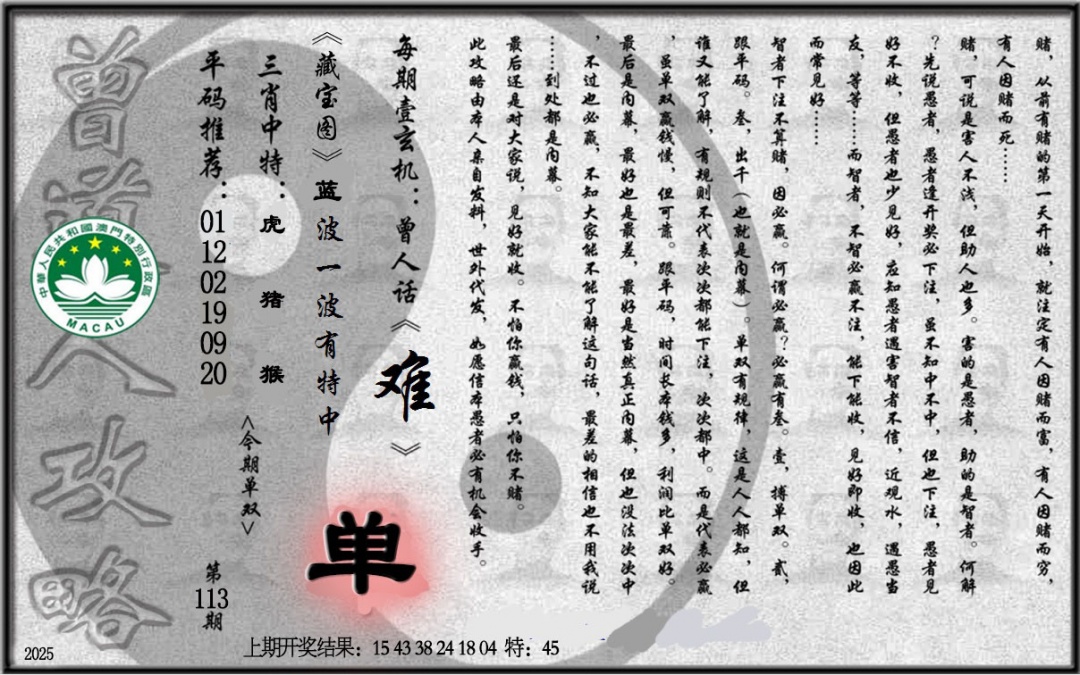 赌，从前有赌的第一天开始，就注定有人因赌而富，有人因赌而穷，
有人因赌而死……
赌，可说是害人不浅，但助人也多。害的是愚者，助的是智者。何解
？先说愚者，愚者逢开奖必下注，虽不知中不中，但也下注，愚者见
好不收，但愚者也少见好，应知愚者遇害智者不信，近观水，遇愚当
友，等等……而智者，不智必赢不注，能下能收，见好即收，也因此
而常见好……
智者下注不算赌，因必赢。何谓必赢？必赢有叁。壹，搏单双。贰，
跟平码。叁，出千（也就是内幕）。单双有规律，这是人人都知，但
谁又能了解，有规则不代表次次都能下注，次次都中。而是代表必赢
，虽单双赢钱慢，但可靠。跟平码，时间长本钱多，利润比单双好。
最后是内幕，最好也是最差，最好是当然真正内幕，但也没法次次中
，不过也必赢，不知大家能不能了解这句话，最差的相信也不用我说
……到处都是内幕。
最后还是对大家说，见好就收。不怕你赢钱，只怕你不赌。
此攻略由本人亲自发料，世外代发，如愿信本愚者必有机会收手。
每期壹玄机：曾人话《难》
《藏宝图》蓝波一波有特中
单
三肖中特：虎 猪 猴
<今期单双>
平码推荐：01 12 02 19 09 20
第113期
曾道人攻略
中華人民共和國澳門特別行政區
MACAU
2025
上期开奖结果：15 43 38 24 18 04 特：45